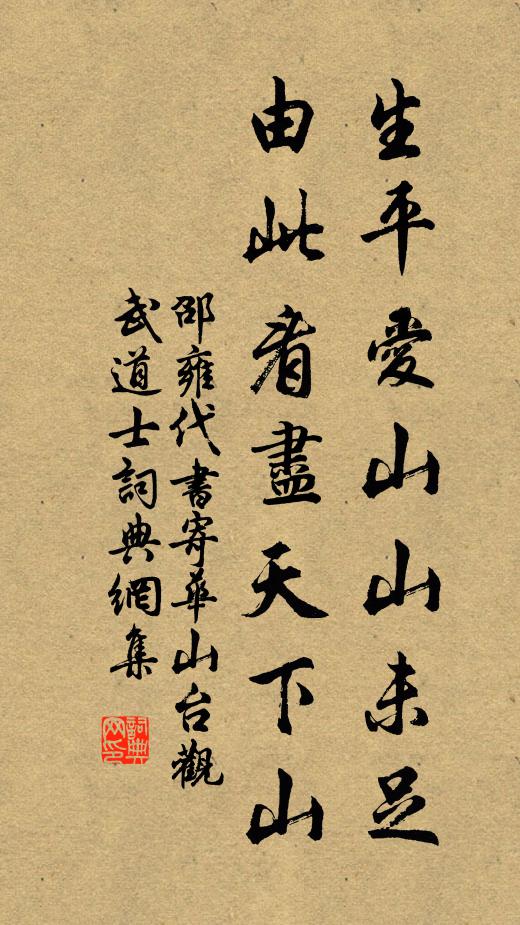 生平愛山山未足
由此看盡天下山
邵雍代書寄華山台觀
武道士詞典網集
詞典
网印